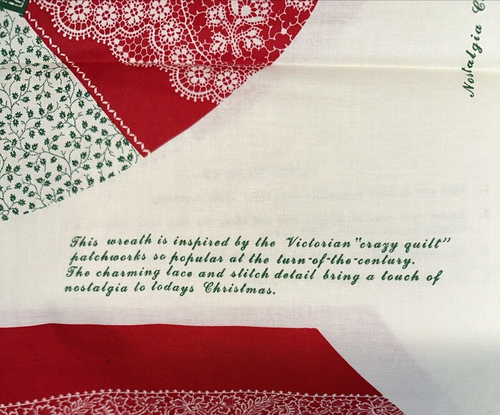 Nostalgia C
This wreath is inspired by the Victorian "crazy quilt"
patchworks so popular at the turn-of-the-century.
The charming lace and stitch detail bring a touch of
nostalgia to todays Christmas.